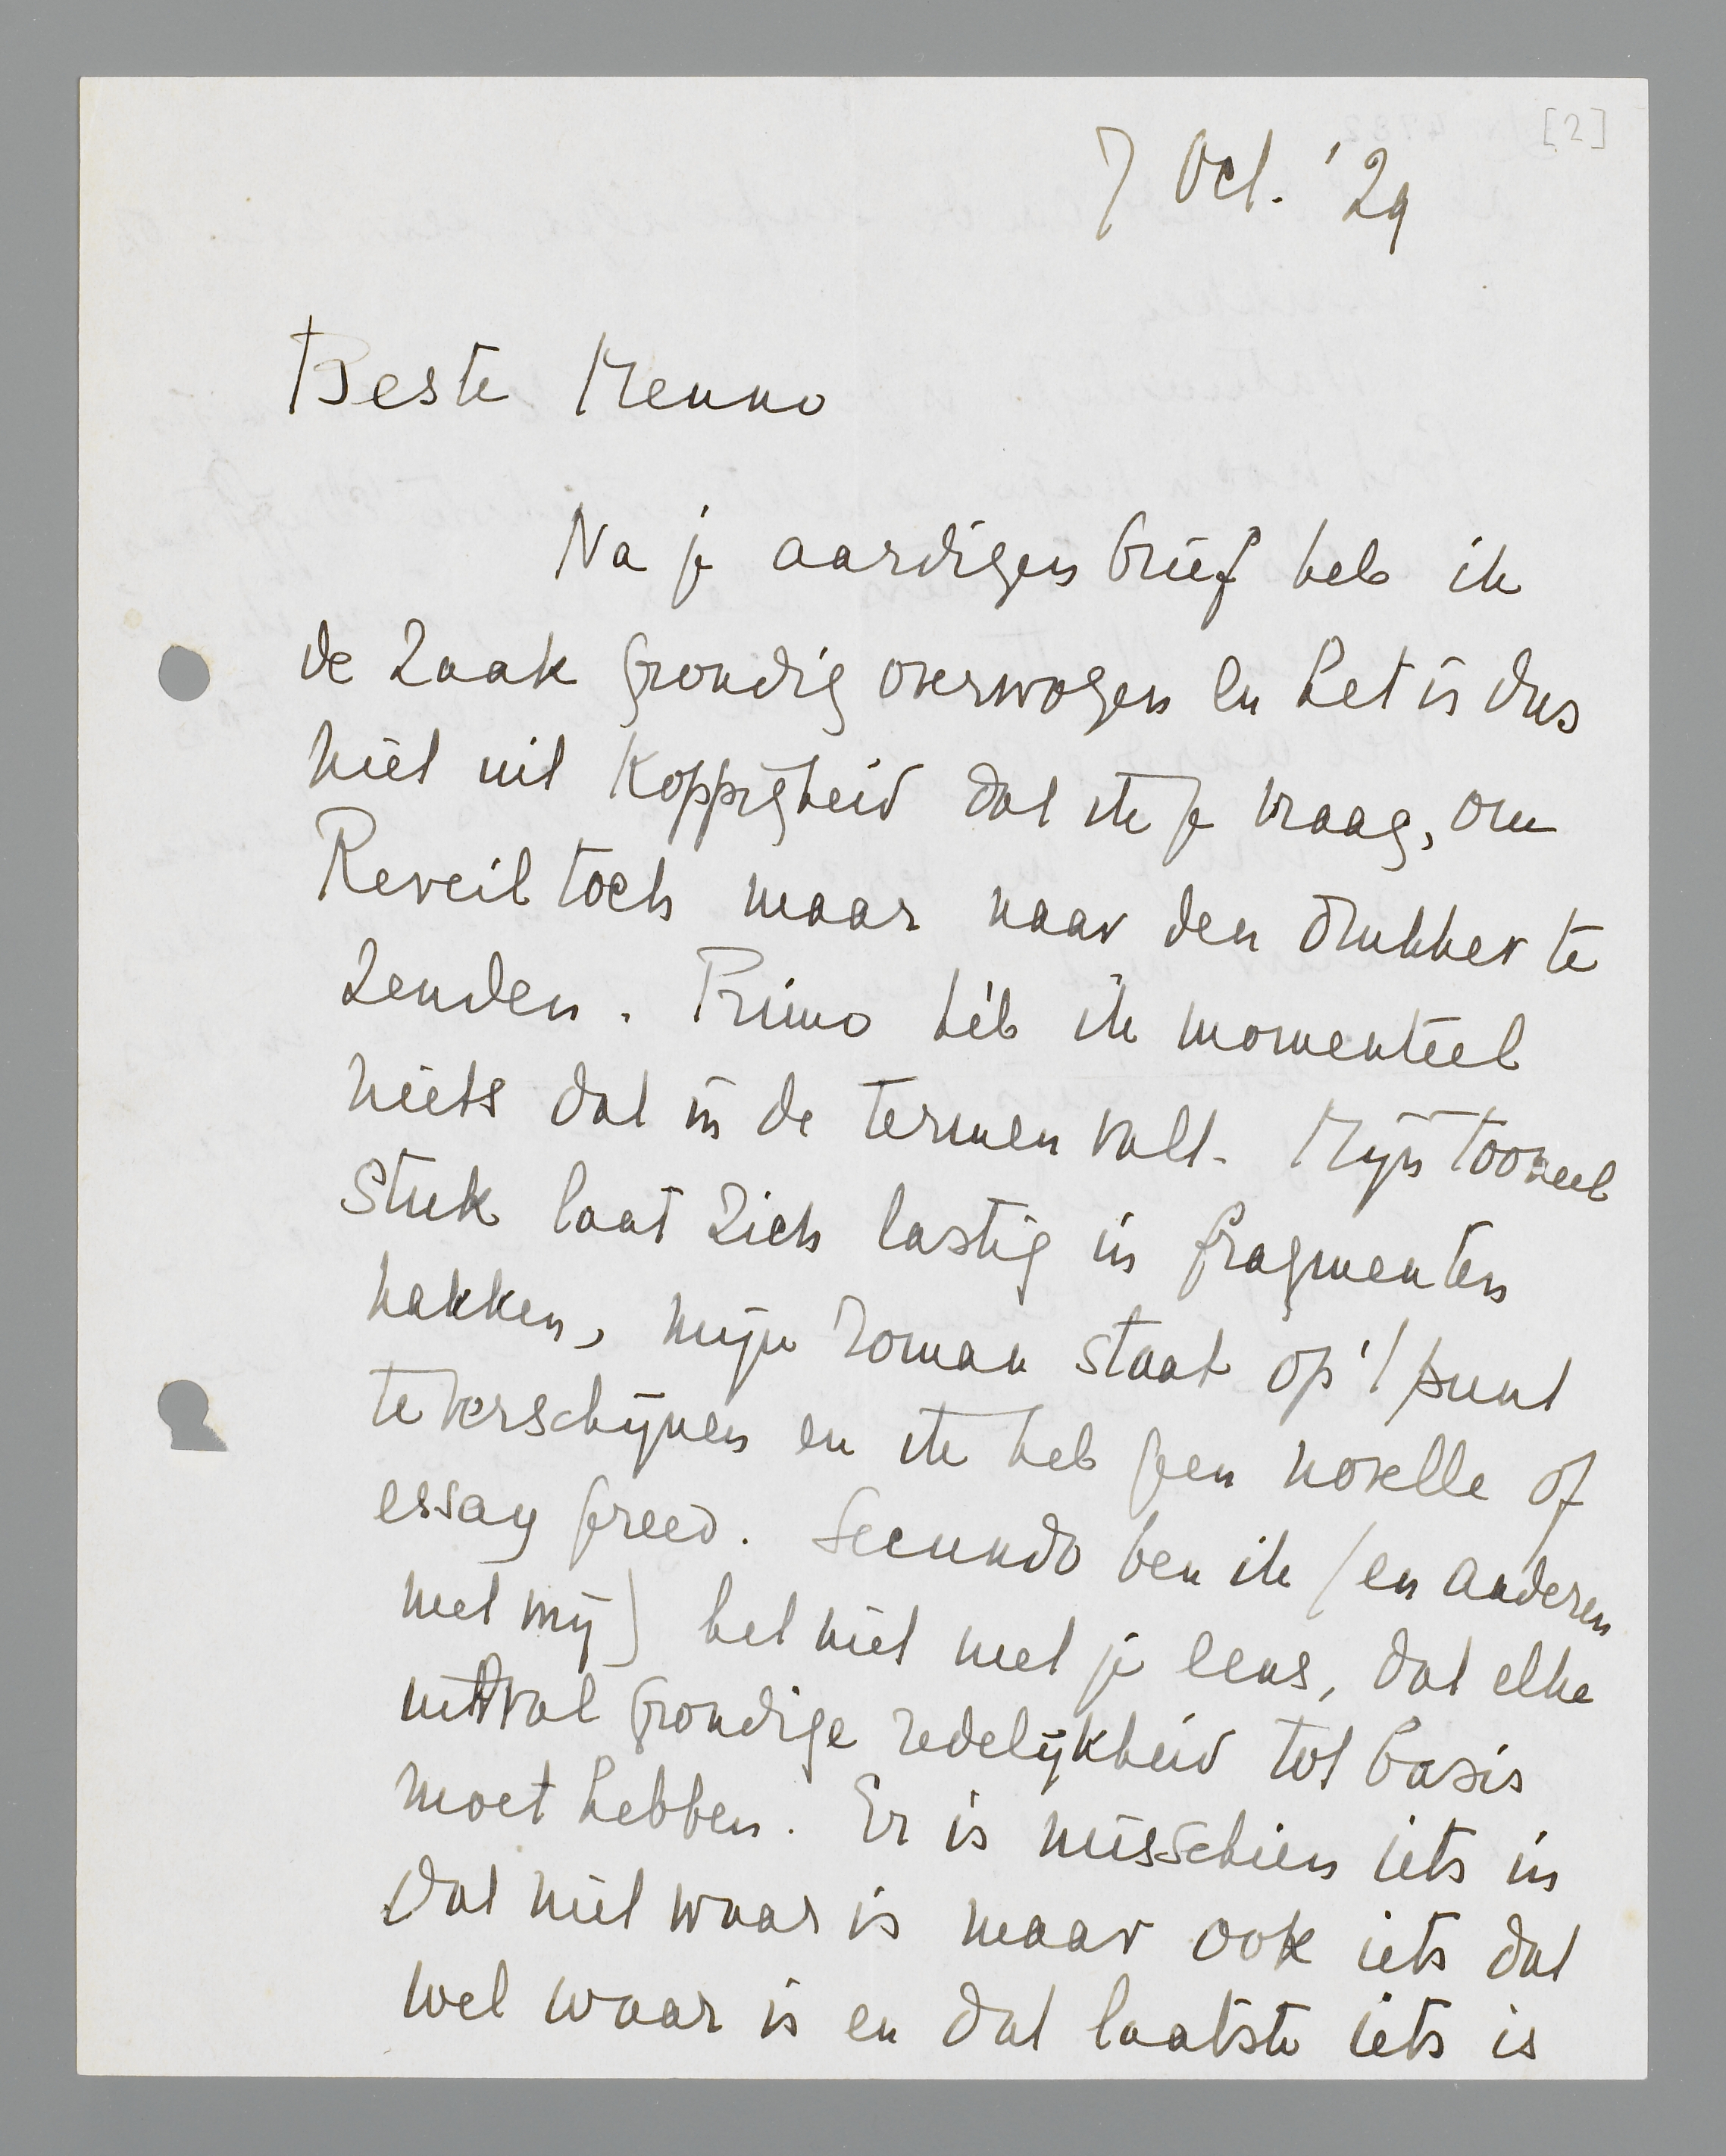 [2]
7 Oct. '29
Beste Menno
Na je aardigen brief heb ik
de zaak grondig overwogen en het is dus
niet uit koppigheid dat ik je vraag, om
Reveil toch maar naar den drukker te
zenden. Primo héb ik momenteel
niets dat in de termen valt. Mijn tooneel
stuk laat zich lastig in fragmenten
hakken, mijn roman staat op 't punt
te verschijnen en ik heb geen novelle of
essay gereed. Secundo ben ik (en anderen
met mij) het niet met je eens, dat elke
uitval grondige redelijkheid tot basis
moet hebben. Er is misschien iets in
dat niet waar is maar ook iets dat
wel waar is en dat laatste iets is